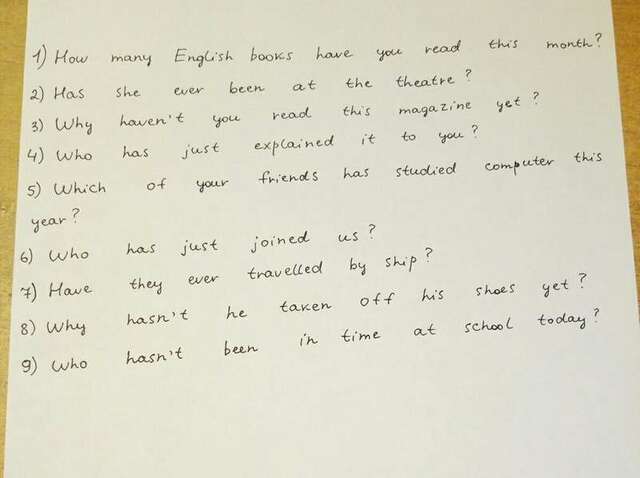 1) How many English books have you read this month?
2) Has she ever been at the theatre?
3) Why haven't you read this magazine yet?
4) Who has just explained it to you?
5) Which of your friends has studied computer this
year?
6) Who has just joined us?
7) Have they ever travelled by ship?
8) Why hasn't he taken off his shoes yet?
9) Who hasn't been in time at school today?